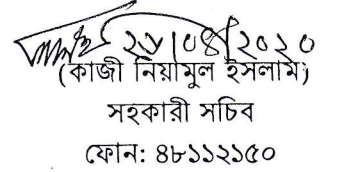 ২৮/০৪/২০২০
(কাজী নিয়ামুল ইসলাম)
সহকারী সচিব
ফোন: ৪৮১১২১৫০